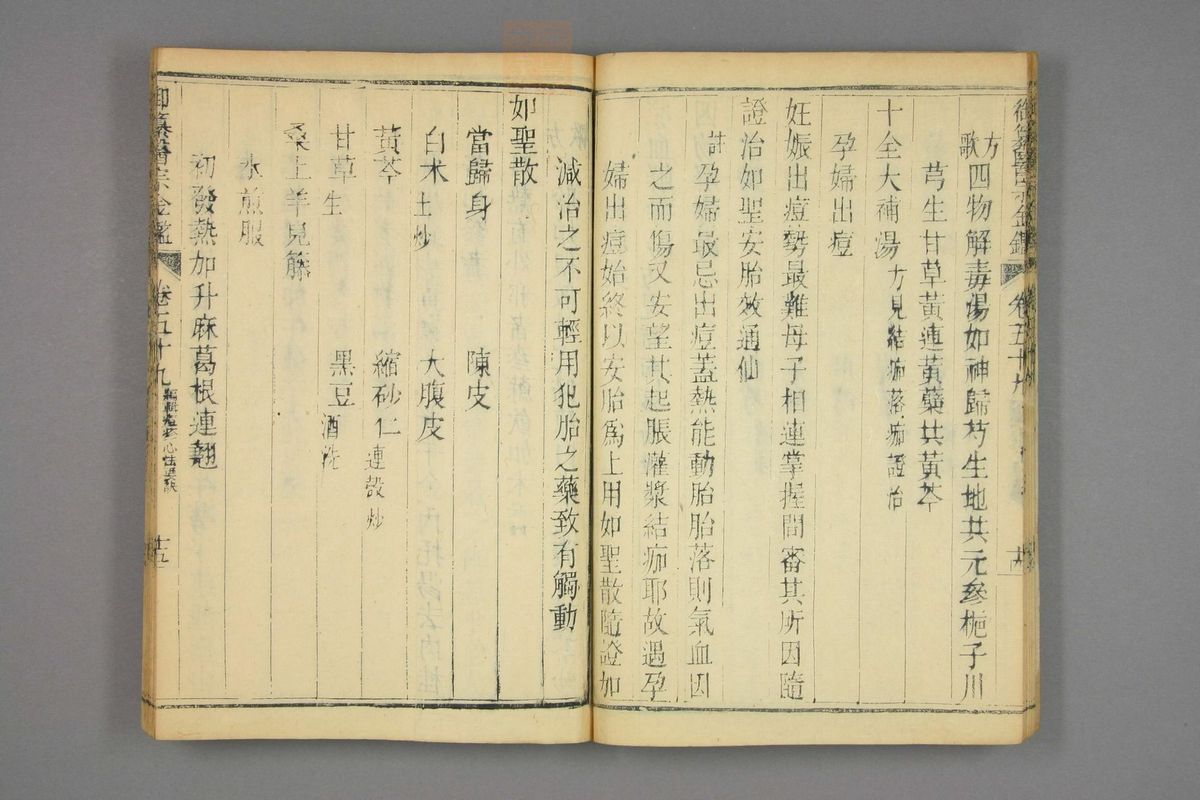 御纂醫宗金鑑 卷五十九
方歌 四物解毒湯如神歸芍生地共元參梔子川
芎生甘草黃連黃蘗共黃芩
十全大補湯 方見結痂落痂證治
孕婦出痘
妊娠出痘勢最難母子相連掌握間審其所因隨
證治如聖安胎效通仙
註 孕婦最忌出痘蓋熱能動胎胎落則氣血因
之而傷又安望其起脹灌漿結痂耶故遇孕
婦出痘始終以安胎爲上用如聖散隨證加
減治之不可輕用犯胎之藥致有觸動
如聖散
當歸身 陳皮
白术 土炒 大腹皮
黃芩 縮砂仁 連殼炒
甘草 生 黑豆 酒洗
桑上羊兒藤
水煎服
初發熱加升麻葛根連翹
御纂醫宗金鑑 卷五十九 編輯痘疹心法要訣